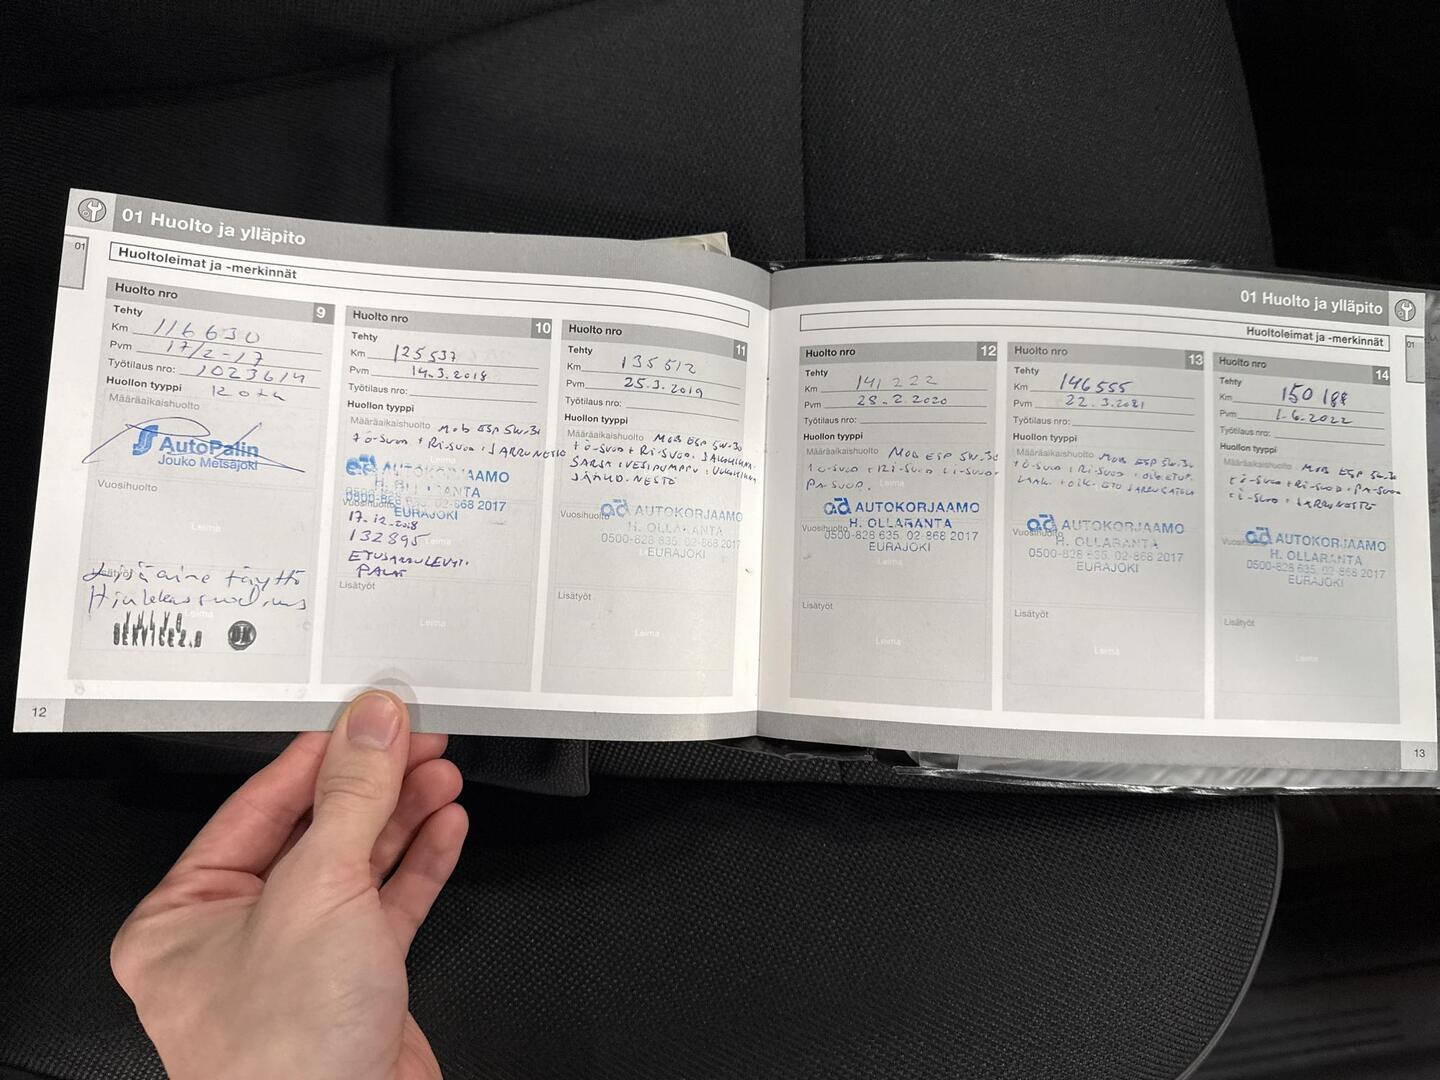 01 Huolto ja ylläpito
01
Huoltoleimat ja -merkinnät
Huolto nro 9
Tehty
Km 116630
Pvm 17/2-17
Työtilaus nro: 1023614
Huollon tyyppi
Määräaikaishuolto
AutoPalin
Jouko Metsäjoki
Vuosihuolto
Leima
Lisätyöt
täyttö
Leima
VOLVO
SERVICE 2.0 OK
12
Huolto nro 10
Tehty
Km 125537
Pvm 14.3.2018
Työtilaus nro:
Huollon tyyppi
Määräaikaishuolto MOB ESP 5W-30
+ Ö-SUOD + RI-SUOD + JARRUNESTE
AUTOKORJAAMO
H. OLLARANTA
0500-828 635, 02-868 2017
EURAJOKI
Vuosihuolto
17.12.2018
132895
Leima
ETUJARRULEVYT.
PALAT
Lisätyöt
Leima
Huolto nro 11
Tehty
Km 135512
Pvm 25.3.2019
Työtilaus nro:
Huollon tyyppi
Määräaikaishuolto MOB ESP 5W-30
+ Ö-SUOD + RI-SUOD. JAKOHIHNA-
SARJA + VESIPUMPPU +
JÄÄHD.NESTE
Vuosihuolto
AUTOKORJAAMO
H. OLLARANTA
0500-828 635, 02-868 2017
EURAJOKI
Lisätyöt
Leima
01 Huolto ja ylläpito
Huoltoleimat ja -merkinnät
01
Huolto nro 12
Tehty
Km 141222
Pvm 28.2.2020
Työtilaus nro:
Huollon tyyppi
Määräaikaishuolto MOB ESP 5W-30
+ Ö-SUOD + RI-SUOD + I-SUOD +
PA-SUOD.
Leima
AUTOKORJAAMO
Vuosihuolto
H. OLLARANTA
0500-828 635, 02-868 2017
EURAJOKI
Leima
Lisätyöt
Leima
Huolto nro 13
Tehty
Km 146555
Pvm 22.3.2021
Työtilaus nro:
Huollon tyyppi
Määräaikaishuolto MOB ESP 5W-30
+ Ö-SUOD + RI-SUOD + OIK.ETUP.
LAAK. + OIK. ETU JARRUSATULA
Vuosihuolto
AUTOKORJAAMO
H. OLLARANTA
0500-828 635, 02-868 2017
EURAJOKI
Lisätyöt
Leima
Huolto nro 14
Tehty
Km 150188
Pvm 1.6.2022
Työtilaus nro:
Huollon tyyppi
Määräaikaishuolto MOB ESP 5W-30
+ Ö-SUOD + RI-SUOD + PA-SUOD
+ I-SUOD + JARRUNESTE
AUTOKORJAAMO
Vuosihuolto
H. OLLARANTA
0500-828 635, 02-868 2017
EURAJOKI
Lisätyöt
Leima
13